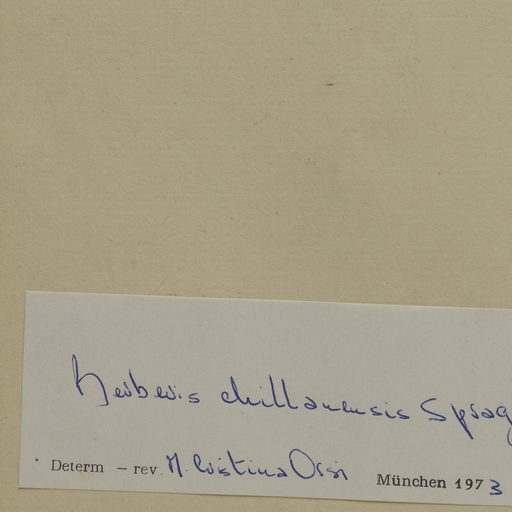 Berberis chillanensis Sprag
Determ – rev. M. Cristina Orsi München 1973